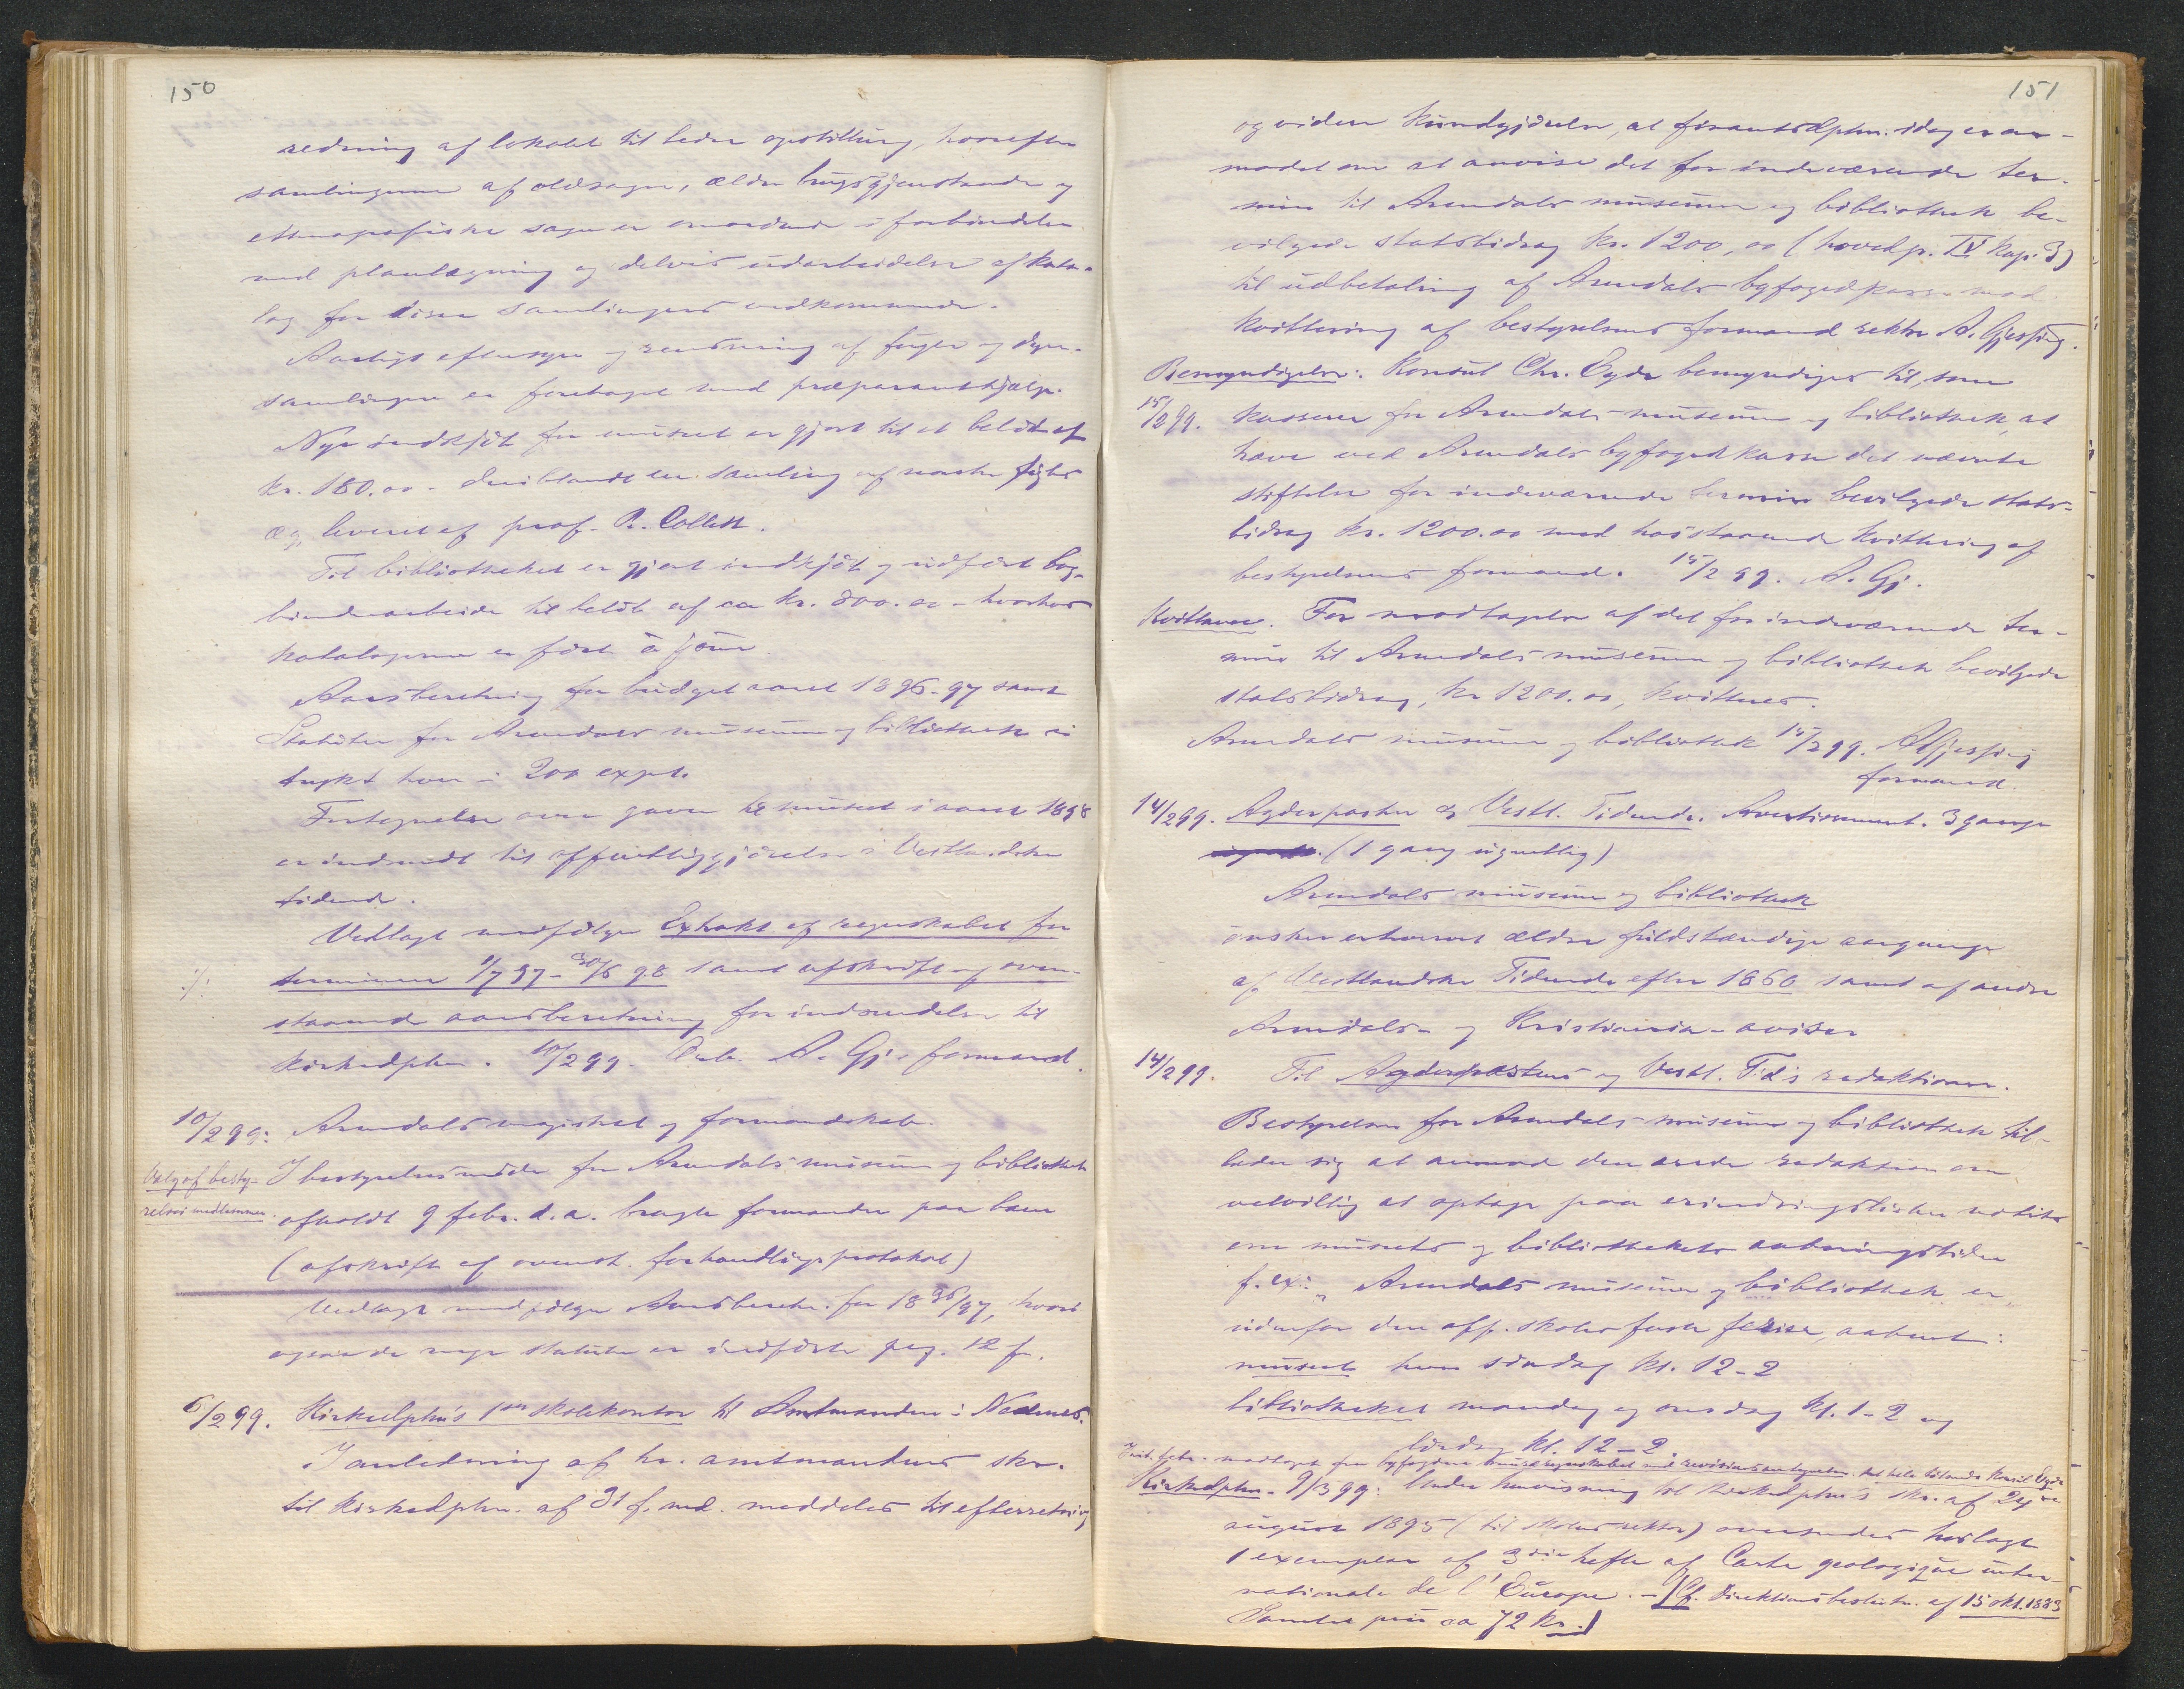 150
redning af lokalet til bedre opstilling, hvorefter
samlingerne af oldsager, ældre brugsgjenstande og
ethnografiske sager er omordnede i forbindelse
med planlægning og delvis udarbeidelse af kata-
log for disse samlingers vedkommende.
Aarligt eftersyn og rensning af fugle og dyre-
samlingen er foretaget med præparanthjælp.
Nye indkjöb for museet er gjort til et belöb af
kr. 180.00 - deriblandt en samling af norske fugles
æg, leveret af prof. R. Collett.
Til bibliotheket er gjort indkjöb og udfört bog-
binderarbeide til belöb af ca kr. 800.00 - hvorhos
katalogerne er fört à jour.
Aarsberetning for budgetaaret 1896-97 samt
Statuter for Arendals museum og bibliothek er
trykt hver i 200 expl.
Fortegnelse over gaver til museet i aaret 1898
er indsendt til offentliggjörelse i Vestlandske
tidende.
Vedlagt medfölger Extrakt af regnskabet for
./. terminen 1/7 97 - 30/6 98 samt afskrift af oven-
staaende aarsberetning for indsendelse til
Kirkedptm. 10/2 99. Ærb. A. Gj. formand.
10/2 99: Arendals magistrat og formandskab.
Valg af besty-
relsesmedlemmer.
I bestyrelsesmöde for Arendals museum og bibliothek
afholdt 9 febr. d. a. bragte formanden paa bane
(afskrift af ovenst. forhandlingsprotokol)
Vedlagt medfölger Aarsberetn. for 1896/97, hvori
ogsaa de nye statuter er indförte pag. 12 f.
6/2 99. Kirkedptm's 1ste skolekontor til Amtmanden i Nedenes.
I anledning af hr. amtmandens skr.
til Kirkedptm. af 31 f. md. meddeles til efterretning
151
og videre kundgjörelse, at finantsdptm. idag er an-
modet om at anvise det for indeværende ter-
min til Arendals museum og bibliothek be-
vilgede statsbidrag kr. 1200,00 (hovedp. IV kap. 3)
til udbetaling af Arendals byfogedkasse mod
kvittering af bestyrelsens formand rektor A. Gjessing.
Bemyndigelse: Konsul Chr. Eyde bemyndiges til, som
15/2 99. kasserer for Arendals museum og bibliothek, at
hæve ved Arendals byfogedkasse det nævnte
stiftelse for indeværende termin bevilgede stats-
bidrag kr. 1200.00 mod hosstaaende kvittering af
bestyrelsens formand. 15/2 99. A. Gj.
Kvittance. For modtagelse af det for indeværende ter-
min til Arendals museum og bibliothek bevilgede
statsbidrag, kr 1200.00, kvitteres.
Arendals museum og bibliothek 15/2 99. AGjessing
formand.
14/2 99. Agderposten og Vestl. Tidende. Avertissement. 3 gange
(1 gang ugentlig)
Arendals museum og bibliothek
önsker erhvervet ældre fuldstændige aargange
af Vestlandske Tidende efter 1860 samt af andre
Arendals- og Kristiania-aviser
14/2 99. Til Agderpostens og Vestl. Tid's redaktioner.
Bestyrelsen for Arendals museum og bibliothek til-
lader sig at anmode den ærede redaktion om
velvillig at optage paa erindringslisten notits
om museets og bibliothekets aabningstider
f. ex: „Arendals museum og bibliothek er
udenfor den off. skoles faste ferier, aabent:
museet hver söndag kl. 12-2
bibliotheket mandag og onsdag kl. 1-2 og
lördag kl. 12-2.
modtaget fra byfogden museregnskabet med det hele tilsendt konsul Eyde
Kirkedptm. 9/3 99: Under henvisning til Kirkedptm's skr. af 24de
august 1895 (til skolens rektor) oversendes herlagt
1 exemplar af 3die hefte af Carte geologique inter-
nationale de l'Europe. - [Cf. Direktionsbeslutn. af 15 okt. 1883
Samlet pris ca 72 kr.]